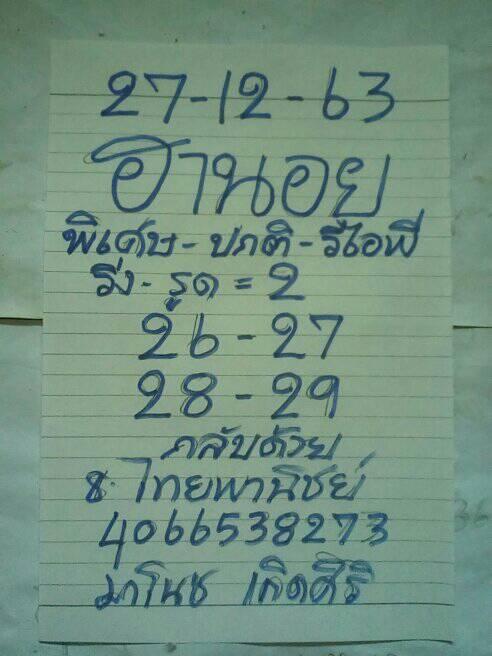 27-12-63
ฮานอย
พิเศษ-ปกติ-วีไอพี
วิ่ง-รูด=2
26-27
28-29
กลับด้วย
ธ.ไทยพานิชย์
4066538273
มาโนช เกิดศิริ